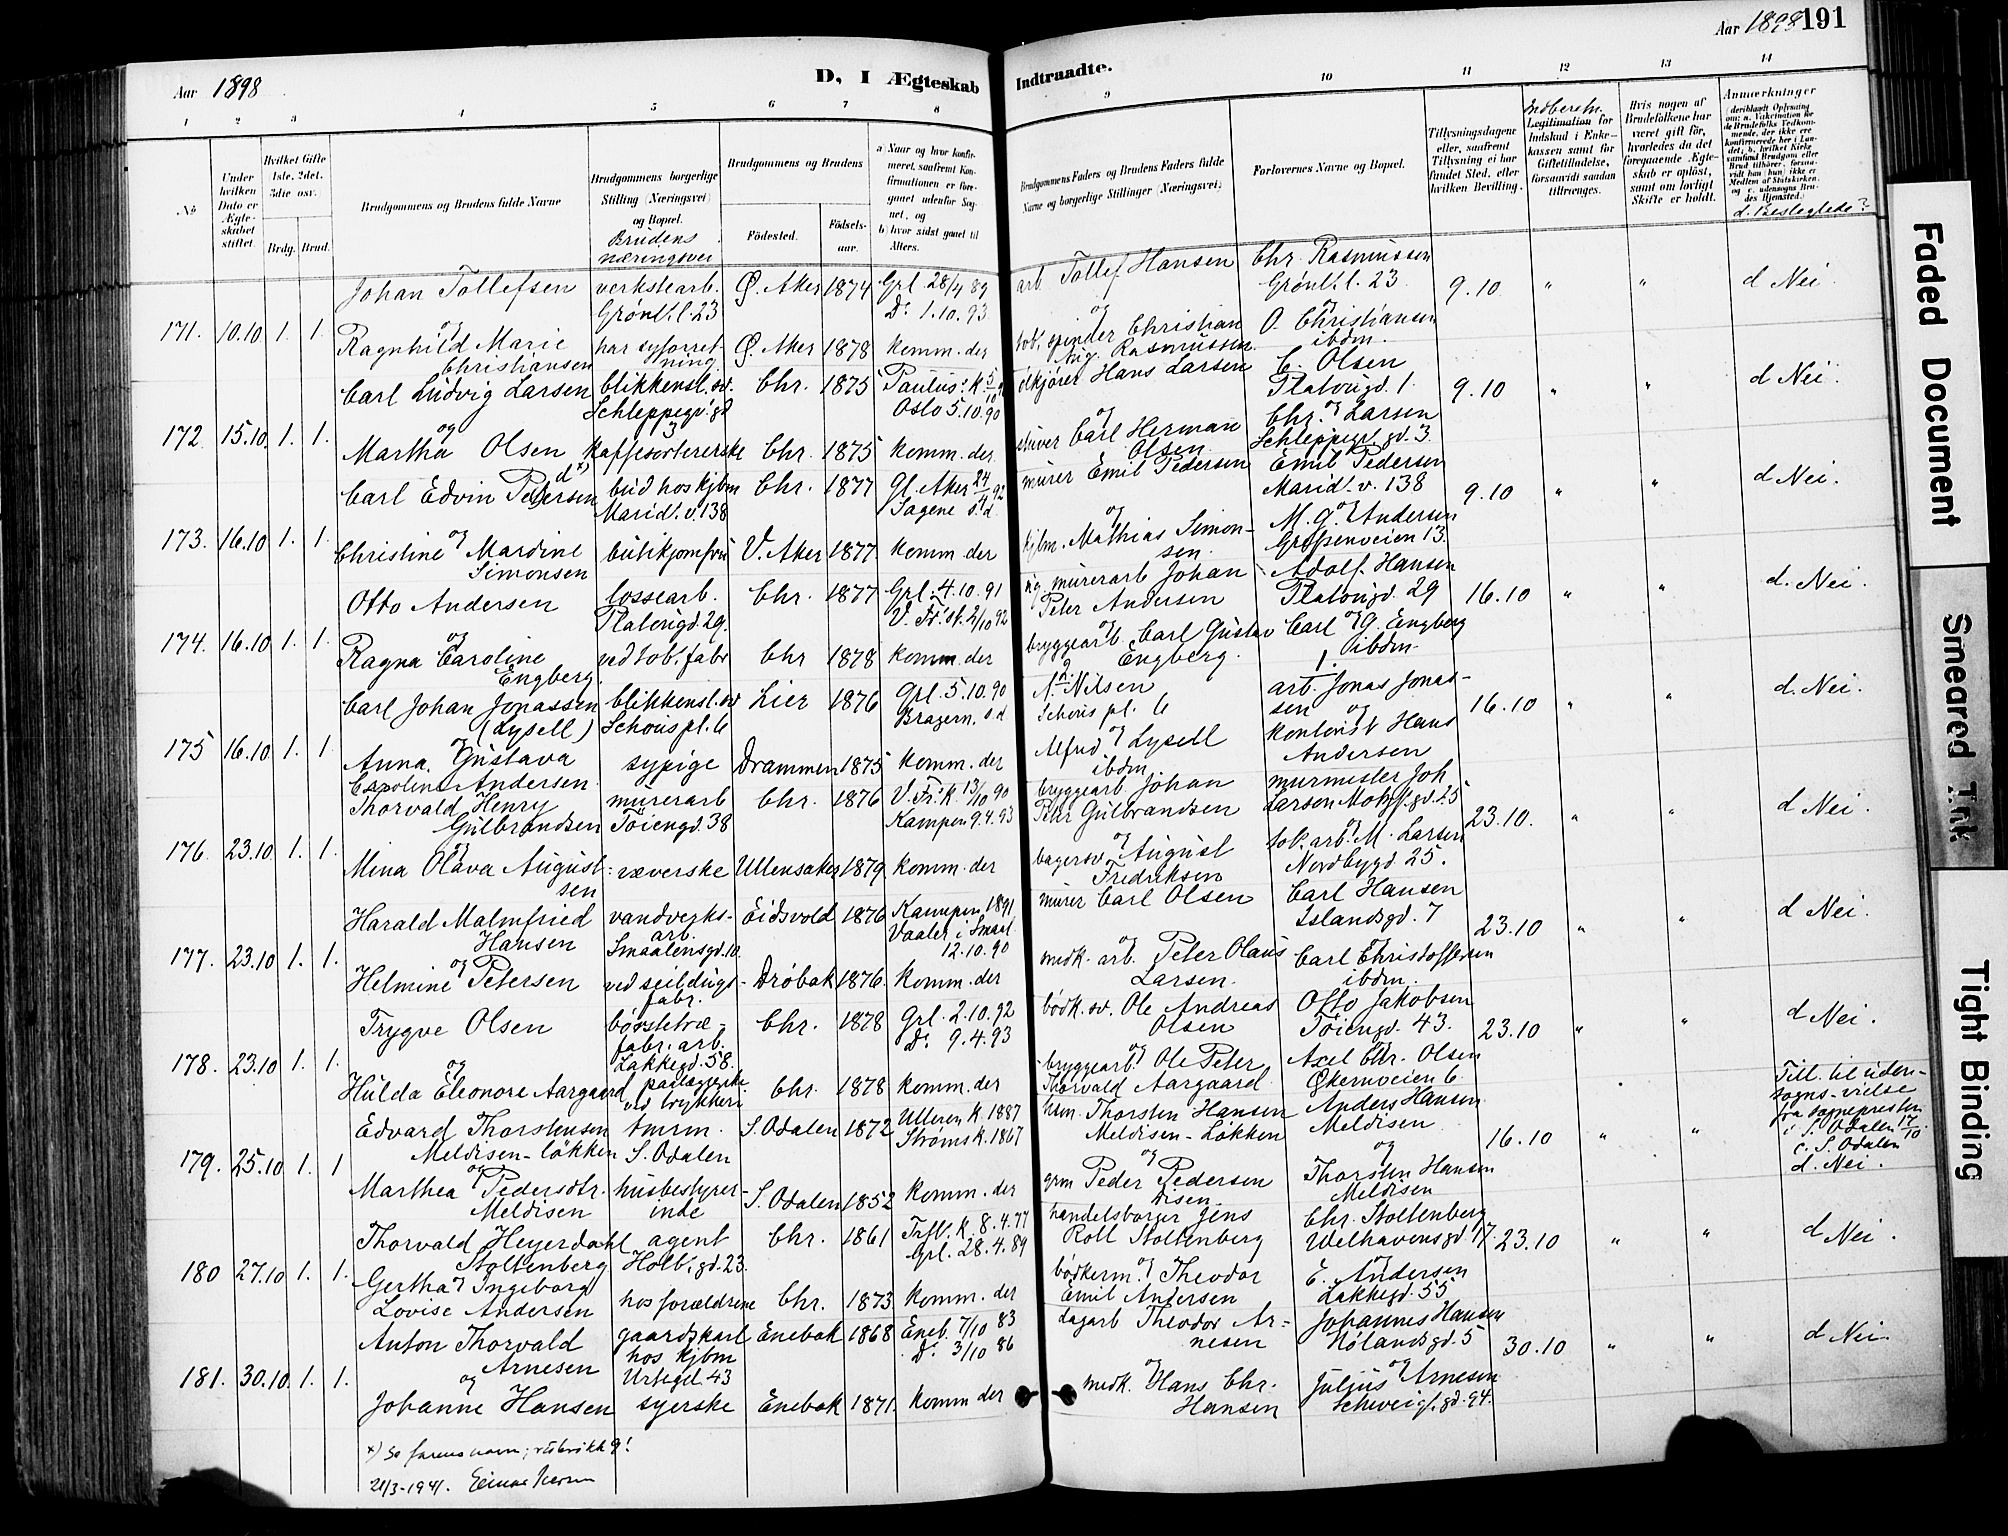 Aar 1898
D, I Ægteskab Indtraadte.
Aar 1898 191
1 2 3 4 5 6 7 8 9 10 11 12 13 14
No
Under hvilken Dato er Ægteskabet stiftet.
Hvilket Gifte 1ste, 2det, 3die osv.
Brdg. Brud.
Brudgommens og Brudens fulde Navne
Brudgommens borgerlige Stilling (Næringsvei) og Bopæl.
Brudens næringsvei
Brudgommens og Brudens
Födested. Födsels-aar.
a) Naar og hvor konfirmeret, saafremt Konfirmationen er foregaaet udenfor Sognet, og
b) hvor sidst gaaet til Alters.
Brudgommens Faders og Brudens Faders fulde Navne og borgerlige Stillinger (Næringsvei)
Forlovernes Navne og Bopæl.
Tillysningsdagene eller, saafremt Tillysning ei har fundet Sted, efter hvilken Bevilling.
Legitimation for Indskud i Enkekassen samt for Giftetilladelse, forsaavidt saadan tiltrænges.
Hvis nogen af Brudefolkene har været gift för, hvorledes da det foregaaende Ægteskab er oplöst, samt om lovligt Skifte er holdt.
Anmærkninger
d. Beslegtede?
171. 10.10 1. 1. Johan Tollefsen verkstearb. Grønl.l. 23 Ø. Aker 1874 Grl. 28/4 89 Do 1.10.93 arb. Tollef Hansen Chr. Rasmussen Grønl.l. 23 9.10 " " d Nei.
og
Ragnhild Marie Christiansen har syforretning Ø. Aker 1878 komm. der tob. spinder Christian Aug. Rasmussen O. Christiansen ibdm.
172. 15.10 1. 1. Carl Ludvig Larsen blikkensl.sv. Schleppegr. gd 3 Chr. 1875 Paulus k. Oslo 5.10.90 Hans Larsen C. Olsen Platousgd. 1 9.10 " " d Nei.
og
Martha Olsen kaffesortererske Chr. 1875 komm. der Carl Herman Olsen Chr. Larsen Schleppegr. gd. 3.
173. 16.10 1. 1. Carl Edvin Pedersen x) bud hos kjbm Marid. v. 138 Chr. 1877 Gl. Aker 24/4 92 Sagene s.d. murer Emil Pedersen Emil Pedersen Marid. v. 138 9.10 " " d Nei.
og
Christine Mardine Simonsen butikjomfru V. Aker 1877 komm. der kjbm. Mathias Simonsen. M. G. Andersen 13.
174. 16.10 1. 1. Otto Andersen lossearb. Platousgd. 29. Chr. 1877 Grl. 4.10.91 2/10 92 murerarb Johan Peter Andersen Adolf Hansen Platousgd. 29 16.10 " " d. Nei.
og
Ragna Caroline Engberg. ved tob. fabr Chr 1878 komm. der bryggearb. Carl Gustav Engberg. Carl G. Engberg ibdm.
175 16.10 1. 1 Carl Johan Jonassen (Lysell) blikkensl. sv Schous pl. 6 Lier 1876 Grl. 5.10.90 Bragern. s.d N. Nilsen Schous pl. 6 arb. Jonas Jonassen 16.10 " " d. Nei.
og
Anna Gustava Caroline Andersen. sypige Drammen 1875 komm. der Alfred Lysell ibdm. kontorist Hans Andersen
176. 23.10 1. 1. Thorvald Henry Gulbrandsen murerarb Töiengd. 38 Chr. 1876 V. Fr. k. 13/10 90 Kampen 9.4.93 bryggearb Johan Peter Gulbrandsen murmester Joh Larsen Motzf. gd. 25 23.10. " " d Nei.
og
Mina Olava Augustsen væverske Ullensaker 1879 komm. der bagersv. August Fredriksen tob. arb. M. Larsen Nordbygd 25.
177. 23.10 1. 1. Harald Malmfried Hansen vandverks-arb. Smaalensgd. 10. Eidsvold 1876 Kampen 1891 Vaaler i Smaal. 12.10.90 murer Carl Olsen Carl Hansen Islandsgd. 7 23.10 " " d Nei.
og
Helmine Petersen ved seildugsfabr. Drøbak 1876. komm. der medk. arb. Peter Olaus Larsen. Carl Christoffersen ibdm.
178. 23.10 1. 1. Trygve Olsen børstetræfabr. arb. Lakkegd. 58. Chr. 1878 Grl. 2.10.92 Do 9.4.93 bødk. sv. Ole Andreas Olsen Otto Jakobsen Töiengd. 43. 23.10 " " d Nei.
og
Hulda Eleonore Aargaard paalæggerske ved trykkeri Chr. 1878 komm. der bryggearb. Ole Peter Thorvald Aargaard Axel Chr. Olsen Økernveien 6
179. 25.10 1. 1 Edvard Thorstensen Meldisen-Løkken tmrm. S. Odalen S. Odalen 1872 Ullern k. 1887 Strøms k. 1867 hsm. Thorsten Hansen Meldisen-Løkken Anders Hansen Meldisen 16.10 " " Till. til udensogns-vielse fra sognepresten i S. Odalen 17/10 c. S. Odalen d. Nei.
og
Marthea Pedersdtr. Meldisen husbestyrerinde S. Odalen 1852 komm. der grm Peder Pedersen Disen Thorsten Hansen Meldisen
180 27.10 1. 1. Thorvald Heyerdahl Stoltenberg agent Holb. gd. 23. Chr. 1861 Trflt. k. 8.4.77 Grl. 28.4.89 handelsborger Jens Roll Stoltenberg Chr. Stoltenberg Welhavensgd 17. 23.10 " " d Nei.
og
Gertha Ingeborg Lovise Andersen hos forældrene Chr. 1873 komm. der bødkerm. Theodor Emil Andersen E. Andersen Lakkegd. 55
181. 30.10. 1. 1. Anton Thorvald Arnesen gaardskarl hos kjbm Urtegd. 43 Enebak 1868 Eneb. 7/10 83 Do 3/10 86 dagarb Theodor Arnesen Johannes Hansen Hølandsgd. 5 30.10 " " d Nei.
og
Johanne Hansen syerske Enebak 1871. komm der medk. Hans Chr. Hansen Julius Arnesen Schweig. gd. 94.
x) Se farens navn; rubrikk 9!
21/3-1941.
Faded Document
Smeared Ink
Tight Binding